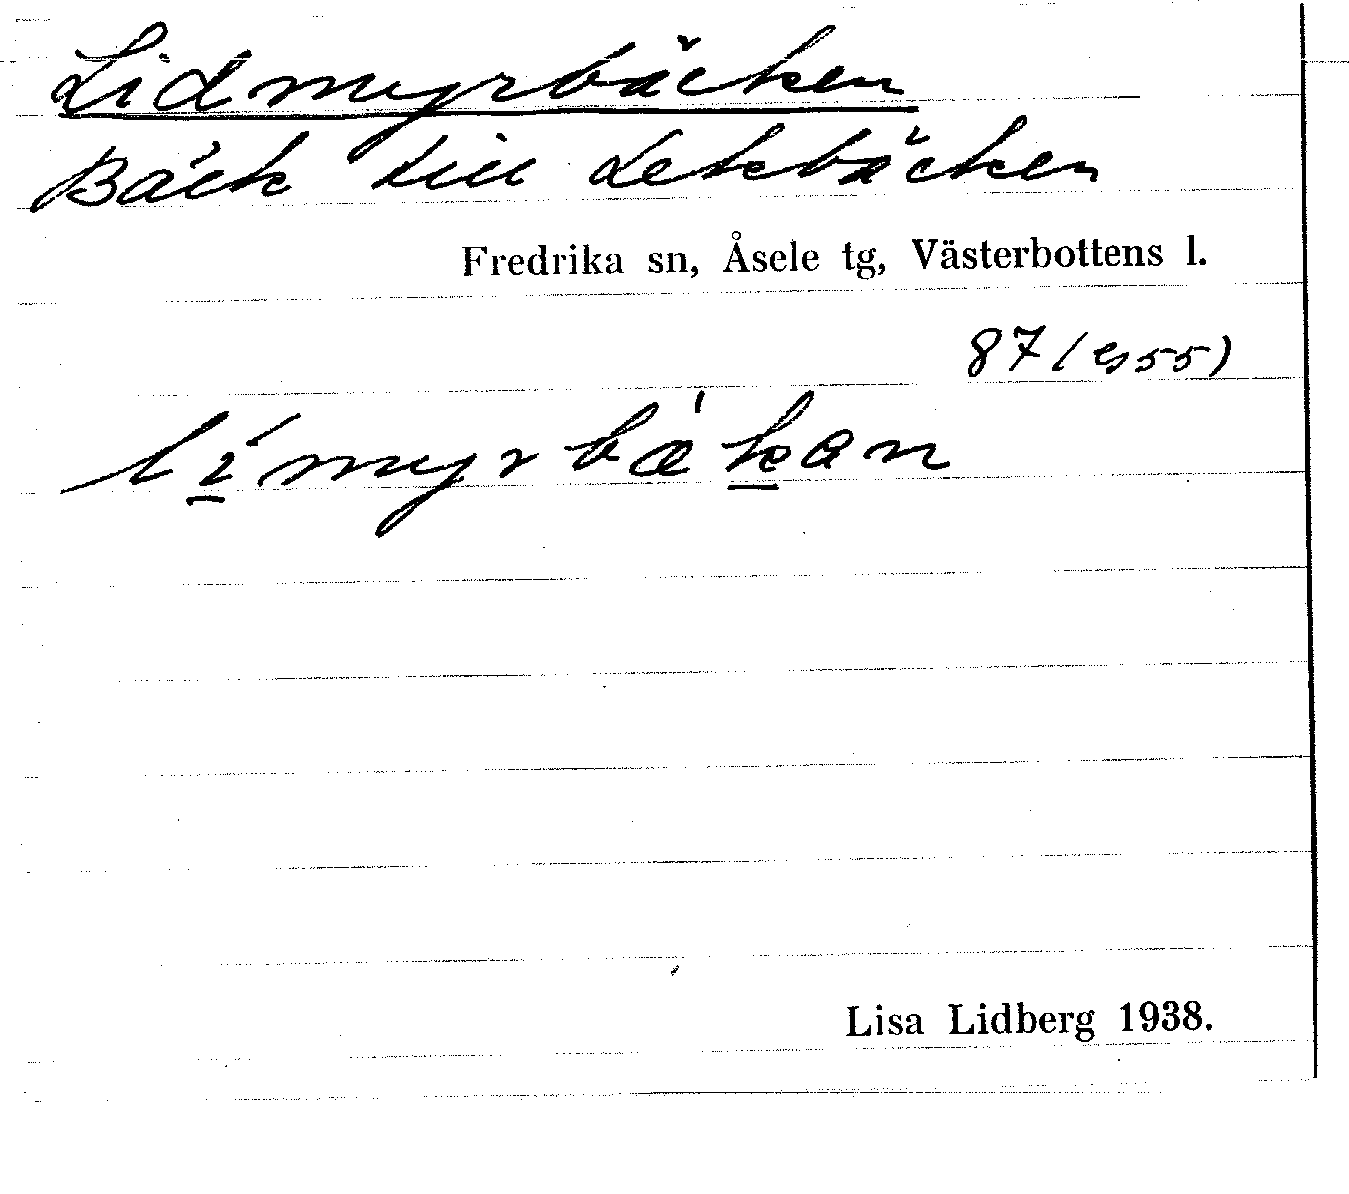 Lidmyrbäcken
Bäck till Lekbäcken
Fredrika sn, Åsele tg, Västerbottens l.
87
límyrbæ̀kan
Lisa Lidberg 1938.